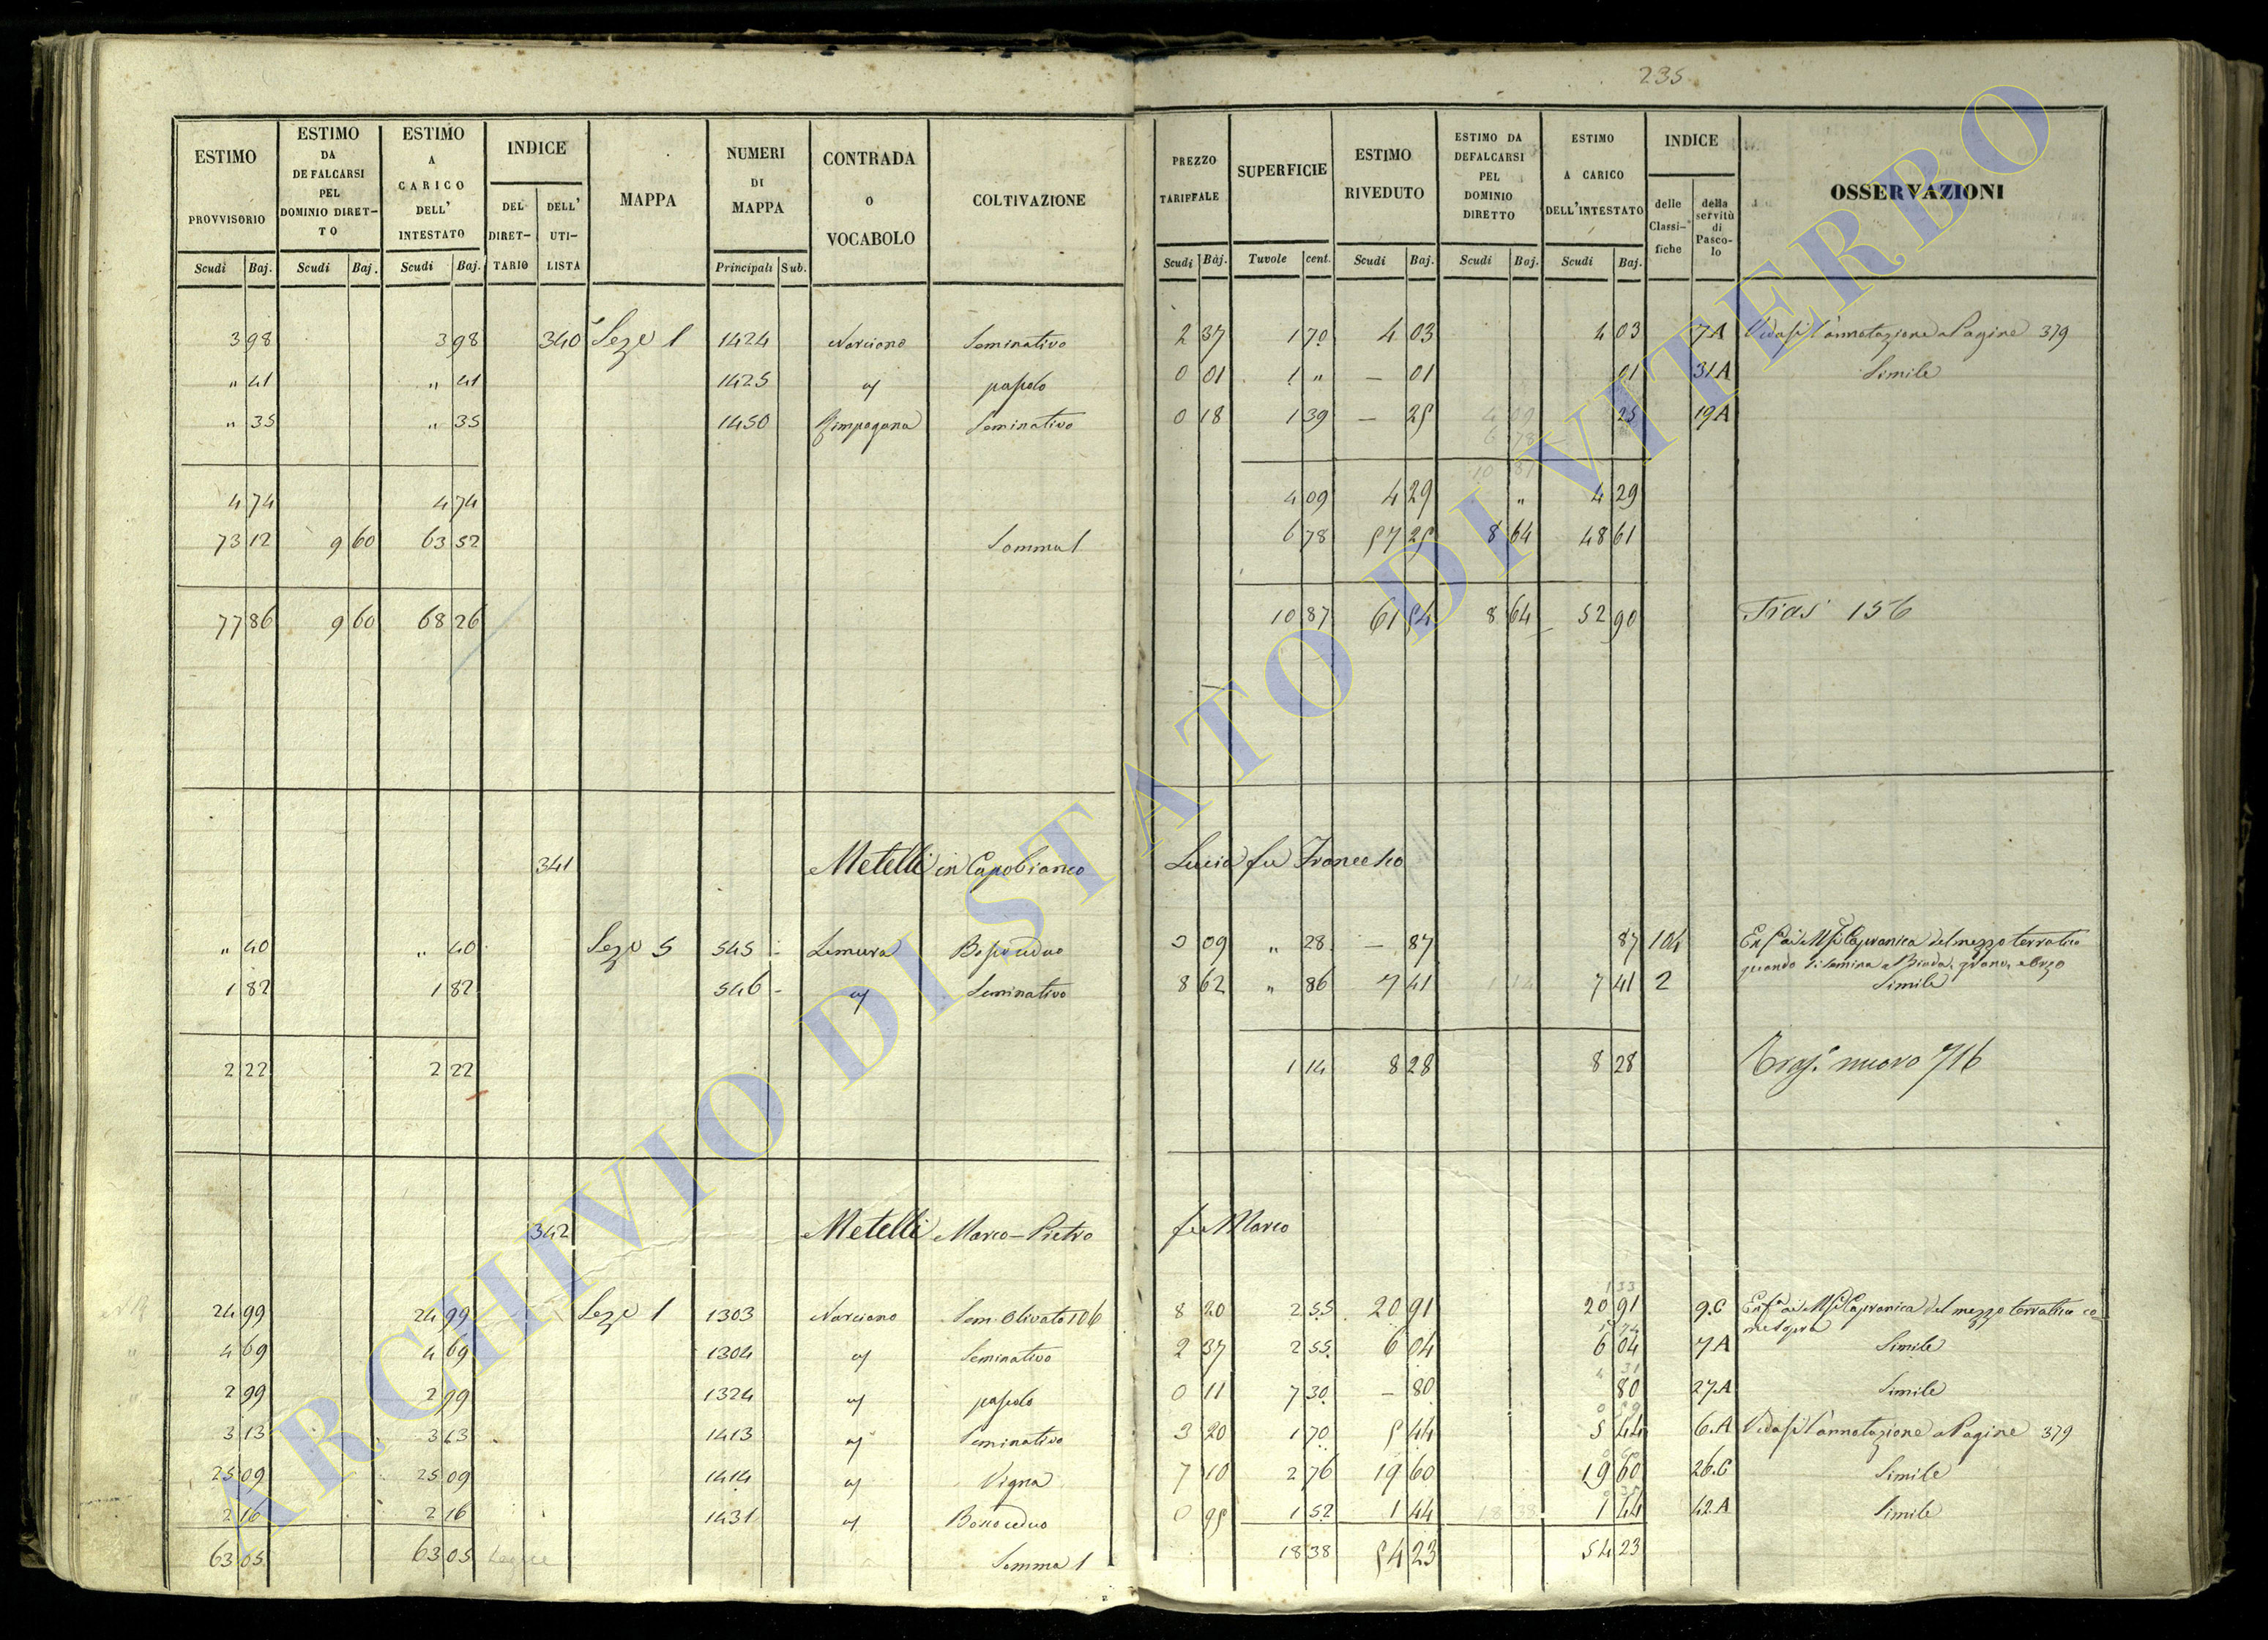 235
ESTIMO PROVVISORIO | ESTIMO DA DEFALCARSI PEL DOMINIO DIRETTO | ESTIMO A CARICO DELL' INTESTATO | INDICE DEL DIRETTARIO | DELL' UTILISTA | MAPPA | NUMERI DI MAPPA | CONTRADA O VOCABOLO | COLTIVAZIONE | PREZZO TARIFFALE | SUPERFICIE | ESTIMO RIVEDUTO | ESTIMO DA DEFALCARSI PEL DOMINIO DIRETTO | ESTIMO A CARICO DELL'INTESTATO | INDICE delle Classifiche | della servitù di Pascolo | OSSERVAZIONI
Scudi | Baj. | Scudi | Baj. | Scudi | Baj. | Principali | Sub. | Scudi | Baj. | Tavole | cent. | Scudi | Baj. | Scudi | Baj. | Scudi | Baj.
3 98 | 3 98 | 340 | Seze 1 | 1424 | Narciano | Seminativo | 2 37 | 1 70 | 4 03 | 4 03 | 7A | Vedasi l'annotazione a Pagine 379
" 41 | " 41 | 1425 | " | pascolo | 0 01 | 1 " | — 01 | 01 | 31A | Simile
" 35 | " 35 | 1450 | Seminativo | 0 18 | 1 39 | — 25 | 25 | 19A
4 74 | 4 74 | 4 09 | 4 29 | " | 4 29
73 12 | 9 60 | 63 52 | Somma 1 | 6 78 | 57 25 | 8 64 | 48 61
77 86 | 9 60 | 68 26 | 10 87 | 61 54 | 8 64 | 52 90 | Tras 156
341 | Metelli in Capobianco Lucia fu Francesco
" 40 | " 40 | Seze 5 | 545 | Bosco ceduo | 3 09 | " 28 | — 87 | 87 | 104 | Capranica del mezzo terratico
quando si semina a Biada, grano, e orzo
1 82 | 1 82 | 546 | " | Seminativo | 8 62 | " 86 | 7 41 | 7 41 | 2 | Simile
2 22 | 2 22 | 1 14 | 8 28 | 8 28 | Tras. nuovo 716
342 | Metelli Marco-Pietro fu Marco
24 99 | 24 99 | Seze 1 | 1303 | Narciano | Sem. Olivato 106 | 8 20 | 2 55 | 20 91 | 20 91 | 9.C | Capranica del mezzo terratico co
me sopra
4 69 | 4 69 | 1304 | " | Seminativo | 2 37 | 2 55 | 6 04 | 6 04 | 7A | Simile
2 99 | 2 99 | 1324 | " | pascolo | 0 11 | 7 30 | — 80 | 80 | 27.A | Simile
3 13 | 3 13 | 1413 | " | Seminativo | 3 20 | 1 70 | 5 44 | 5 44 | 6.A | Vedasi l'annotazione a Pagine 379
25 09 | 25 09 | 1414 | " | Vigna | 7 10 | 2 76 | 19 60 | 19 60 | 26.C | Simile
2 16 | 2 16 | 1431 | " | Bosco ceduo | 0 95 | 1 52 | 1 44 | 1 44 | 42.A | Simile
63 05 | 63 05 | Segue | Somma 1 | 18 38 | 54 23 | 54 23
ARCHIVIO DI STATO DI VITERBO